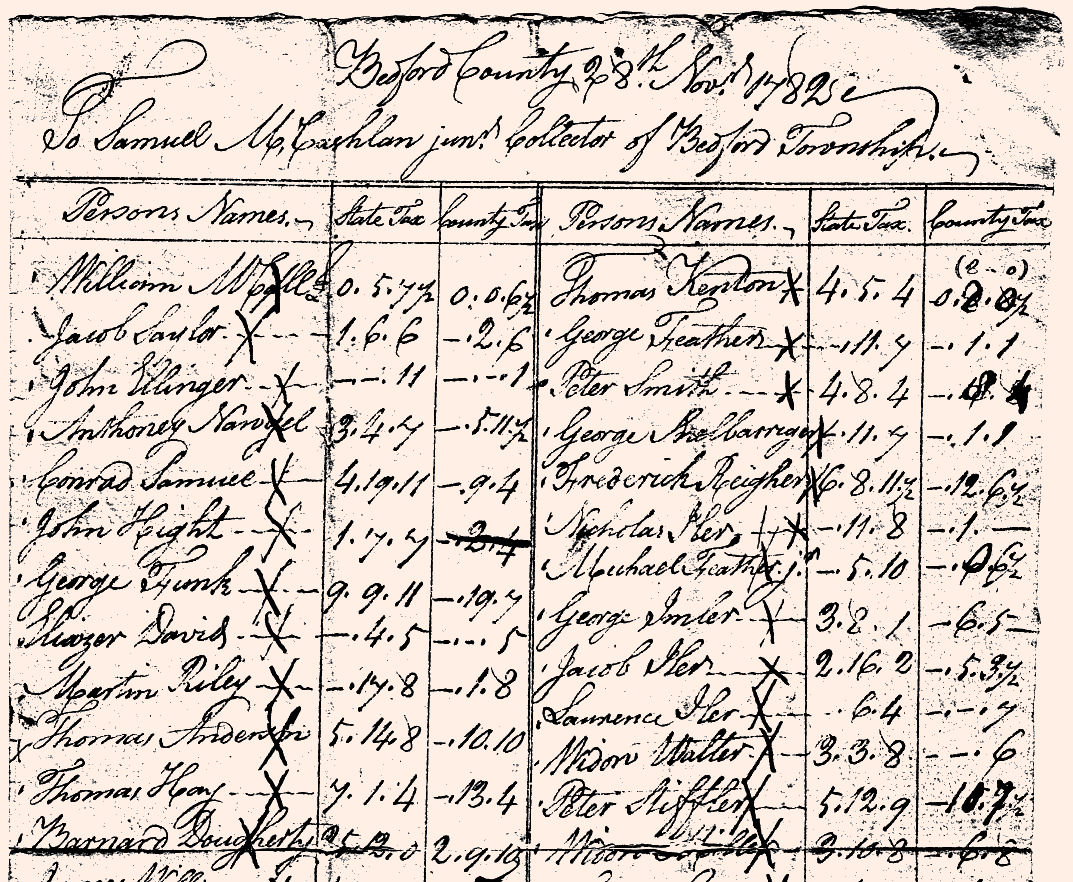 Bedford County 28th Novr 1782
To Samuel McCashlan junr Collector of Bedford Township.
Persons Names. State Tax County Tax Persons Names. State Tax. County Tax
William McCall 0. 5. 7½ 0. 0. 6½ Thomas Kenton X 4. 5. 4 (8-0)
Jacob Saylor X 1. 6. 6 -. 2. 6 George Feather X -. 11. 7 -. 1. 1
John Ellinger X -. -. 11 -. -. 1 Peter Smith X 4. 8. 4
Anthoney Nawgel X 3. 4. 7 -. 5. 11½ George Shellbarriger X -. 11. 7 -. 1. 1
Conrad Samuel X 4. 19. 11 -. 9. 4 Frederick Reigher X 6. 8. 11½ -. 12. 6½
John Hight X 1. 7. 7 -. 2. 4 Nicholas Iler X -. 11. 8 -. 1. -
George Funk X 9. 9. 11 -. 19. 7 Michael Feather jr X -. 5. 10 -. 0. 6½
Eliazer David X -. 4. 5 -. -. 5 George Imler X 3. 2. 1 -. 6. 5
Martin Riley X -. 17. 8 -. 1. 8 Jacob Iler X 2. 16. 2 -. 5. 3½
Thomas Anderson X 5. 14. 8 -. 10. 10 Laurence Iler X - 6. 4 -. -. 7
Thomas Hay X 7. 1. 4 -. 13. 4 Widow Walter X 3. 3. 8 -. -. 6
Barnard Dougherty X 25. 12. 0 2. 9. 10 Peter Stiffler X 5. 12. 9 -. 10. 7½
Widow X 3. 10. 8 -. 6. 8